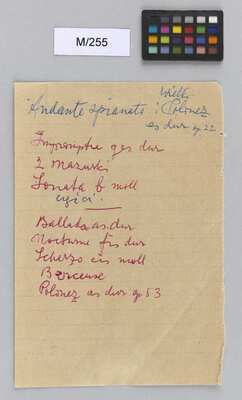 M/255
Wielki
Andante spianato i Polonez
es dur op 22
Impromptu ges dur
2 mazurki
Sonata b moll
Ballada as dur
Nocturne fis dur
Scherzo cis moll
Berceuse
Polonez as dur op 53